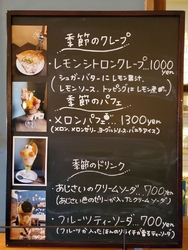 季節のクレープ
・レモンシトロンクレープ..1000yen
(シュガーバターにレモン果汁、
レモンソース、トッピングにレモン煮。)
季節のパフェ
・メロンパフェ....1300yen
(メロン、メロンゼリー、ヨーグルトソース、バニラアイス)
季節のドリンク
・あじさいのクリームソーダ...700yen
(あじさい色のゼリーが入ったクリームソーダ)
・フルーツティーソーダ...700yen
(フルーツが入ったほんのり